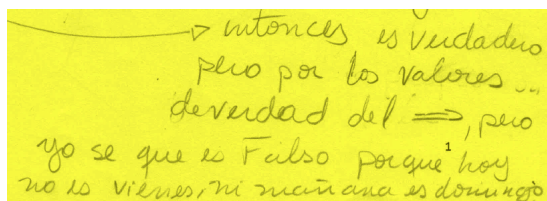 entonces es verdadero
pero por los valores...
de verdad del ⇒, pero
yo se que es Falso porque¹ hoy
no es viernes, ni mañana es domingo